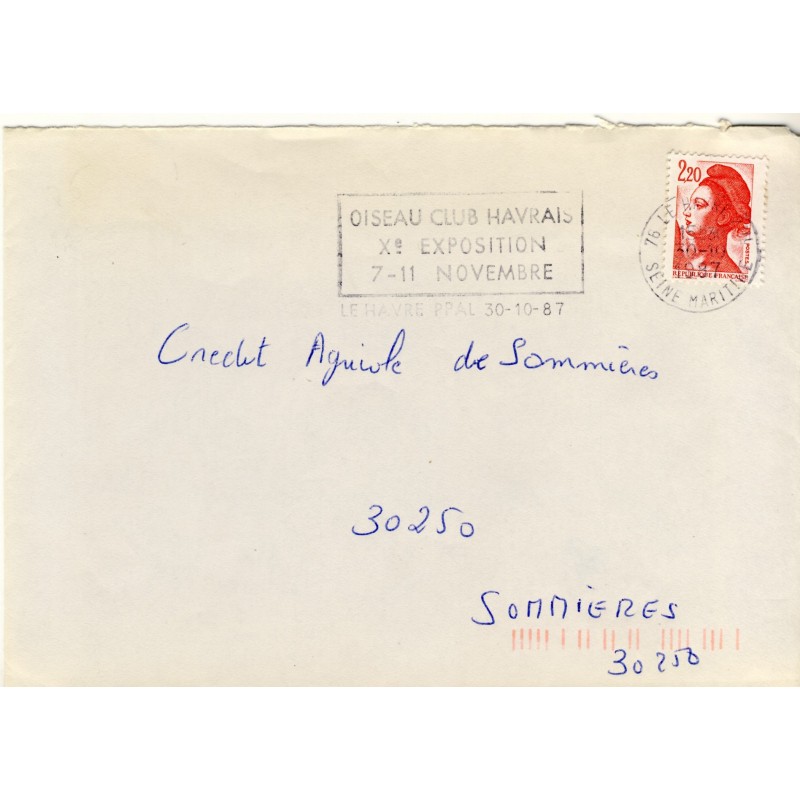 2,20
POSTES
REPUBLIQUE FRANÇAISE
OISEAU CLUB HAVRAIS
Xe EXPOSITION
7-11 NOVEMBRE
LE HAVRE PPAL 30-10-87
76 LE
30-10
1987
SEINE MARITIME
Credit Agricole de Sommières
30250
SOMMIERES
30250